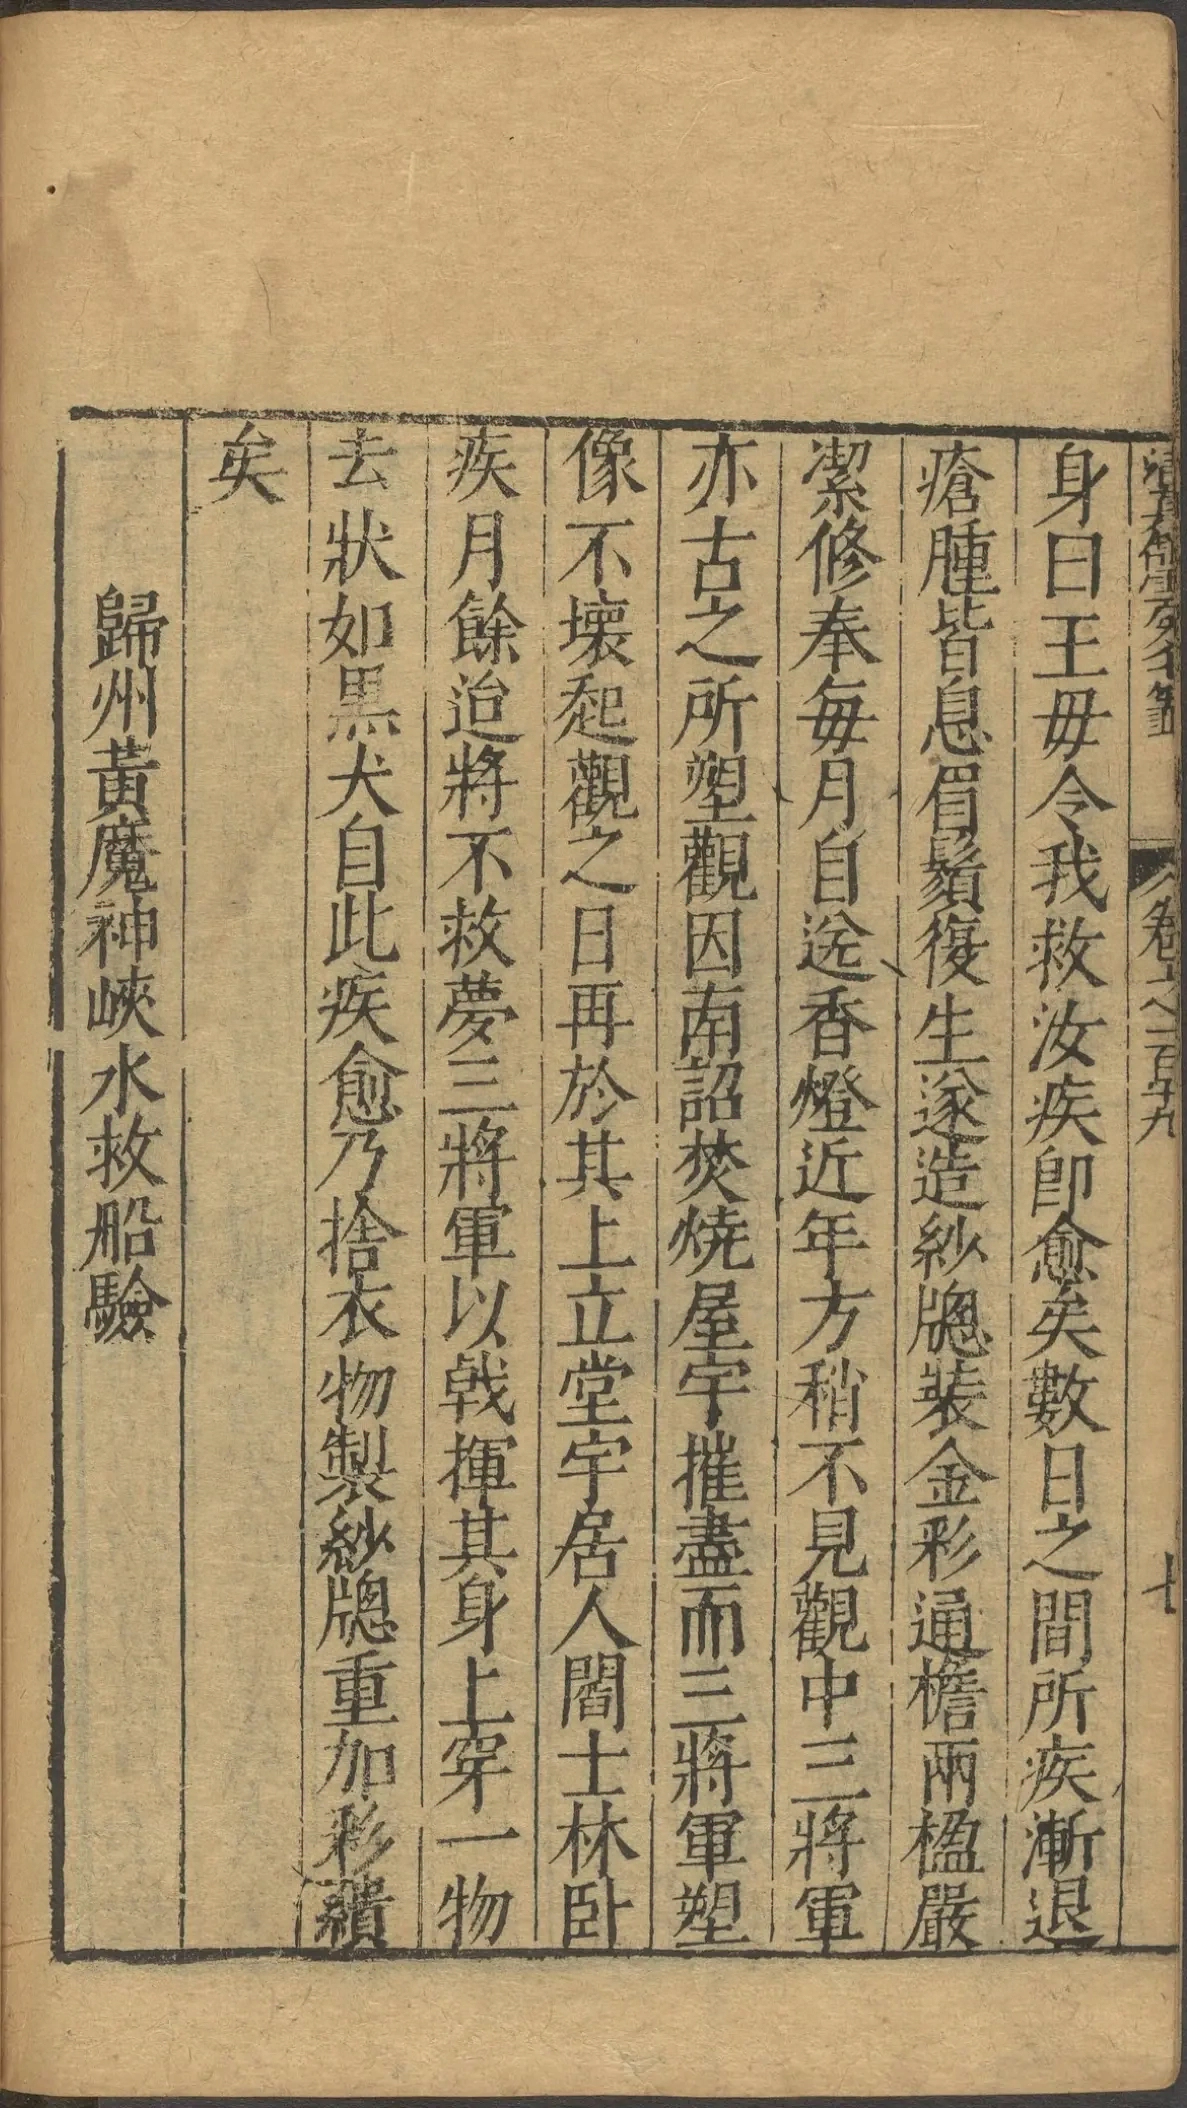 卷之一百十九
七
身曰王毋令我救汝疾卽愈矣數日之間所疾漸退
瘡腫皆息眉鬚復生遂造紗牕裝金彩通檐兩楹嚴
潔修奉每月自送香燈近年方稍不見觀中三將軍
亦古之所塑觀因南詔焚燒屋宇摧盡而三將軍塑
像不壞起觀之日再於其上立堂宇居人閻士林卧
疾月餘迨將不救夢三將軍以戟揮其身上穿一物
去狀如黑犬自此疾愈乃捨衣物製紗牕重加彩繢
矣
歸州黃魔神峽水救船驗